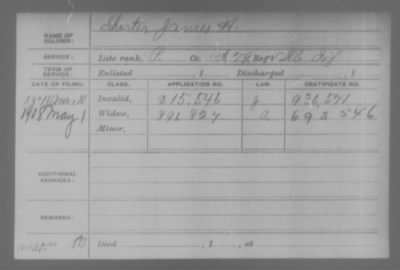 NAME OF SOLDIER: Shorter James H.
SERVICE: Late rank, P. Co. 79 Reg't Inf
TERM OF SERVICE: Enlisted , 1 Discharged , 1
DATE OF FILING. CLASS. APPLICATION NO. LAW. CERTIFICATE NO.
Invalid, 215,546 936,571
1908 May 1 Widow, 891827 693546
Minor,
ADDITIONAL SERVICES:
REMARKS:
Died , 1 , at